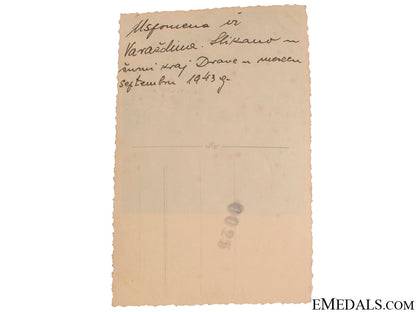 Uspomena iz
Varaždina. Slikano u
šumi kraj Drave u mesecu
septembru 1943 g.
0025
EMEDALS.COM